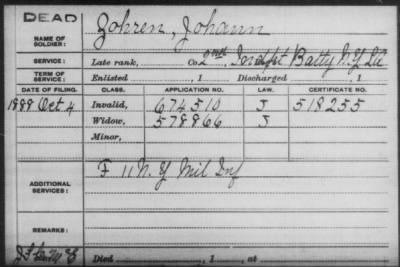 DEAD
NAME OF SOLDIER: Zohren, Johann
SERVICE: Late rank, Co. 2nd Indpt Batty N.Y. L.A.
TERM OF SERVICE: Enlisted , 1 Discharged , 1
DATE OF FILING. CLASS. APPLICATION NO. LAW. CERTIFICATE NO.
1888 Oct 4 Invalid, 674510 J 518255
Widow, 578866 J
Minor,
ADDITIONAL SERVICES: F 11 N.Y. Mil Inf
REMARKS:
Died , 1 , at